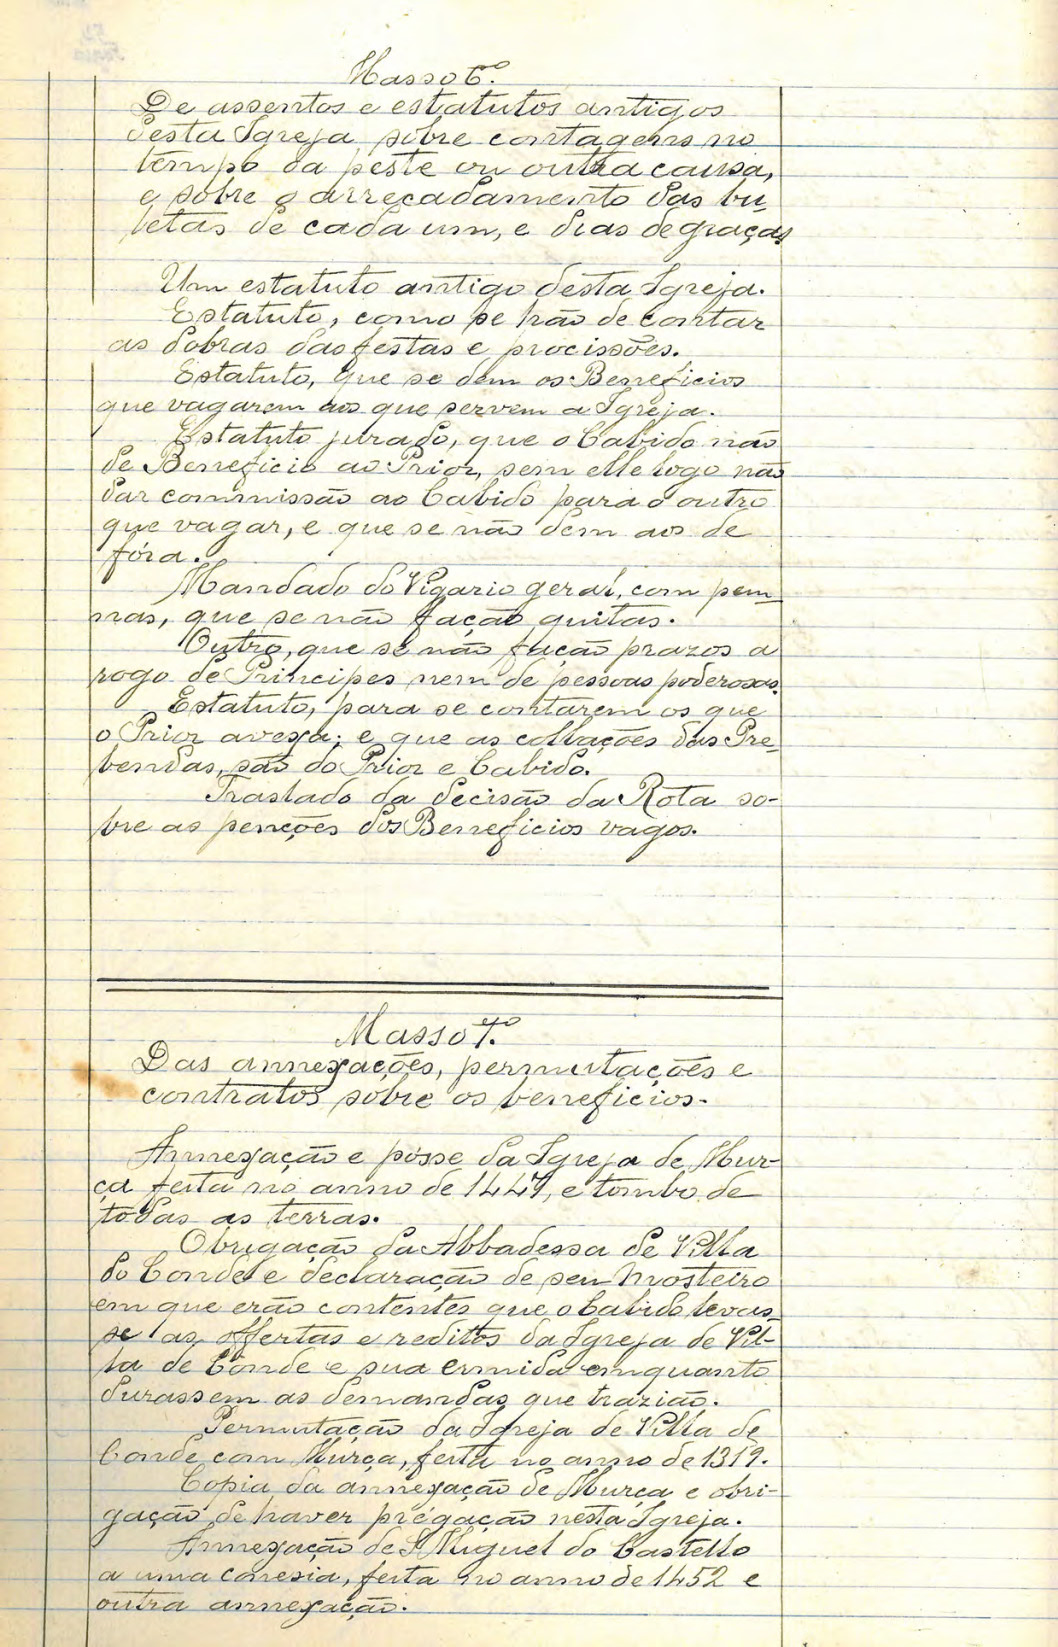 Masso 6.º
De assentos e estatutos antigos
desta Igreja sobre contagens no
tempo da peste ou outra causa,
e sobre o arrecadamento das bu-
letas de cada um, e dias de graças
Um estatuto antigo desta Igreja.
Estatuto, como se hão de contar
as dobras das festas e procissões.
Estatuto, que se dem os Beneficios
que vagarem aos que servem a Igreja.
Estatuto jurado, que o Cabido não
de Beneficio ao Prior, sem elle logo não
dar commissão ao Cabido para o outro
que vagar, e que se não dem aos de
fóra.
Mandado do Vigario geral, com pen-
nas, que se não fação quitas.
Outro, que se não fação prazos a
rogo de Principes nem de pessoas poderosas.
Estatuto, para se contarem os que
o Prior avexa; e que as collações das Pre-
bendas, são do Prior e Cabido.
Traslado da decisão da Rota so-
bre as penções dos Beneficios vagos.
Masso 7.º
Das annexações, permutações e
contratos sobre os beneficios.
Annexação e posse da Igreja de Mur-
ça feita no anno de 1447, e tombo de
todas as terras.
Obrigação da Abbadessa de Villa
do Conde e declaração de seu Mosteiro
em que erão contentes que o Cabido levas-
se as offertas e reditos da Igreja de Vil-
la de Conde e sua ermida emquanto
durassem as demandas que trazião.
Permutação da Igreja de Villa de
Conde com Murça, feita no anno de 1319.
Copia da annexação de Murça e obri-
gação de haver prégação nesta Igreja.
Annexação de S. Miguel do Castello
a uma conesia, feita no anno de 1452 e
outra annexação.